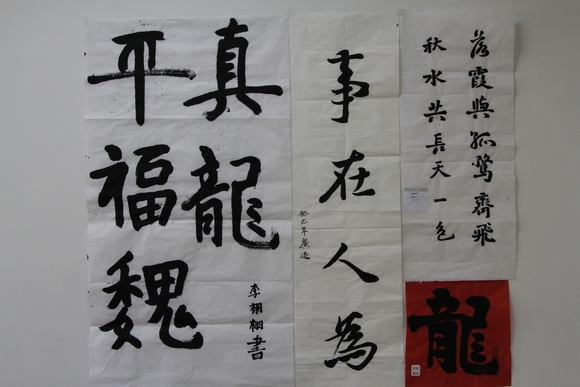 落霞與孤鶩齊飛
秋水共長天一色
龍
事在人為
癸巳年
真龍
平福魏
李栩栩書